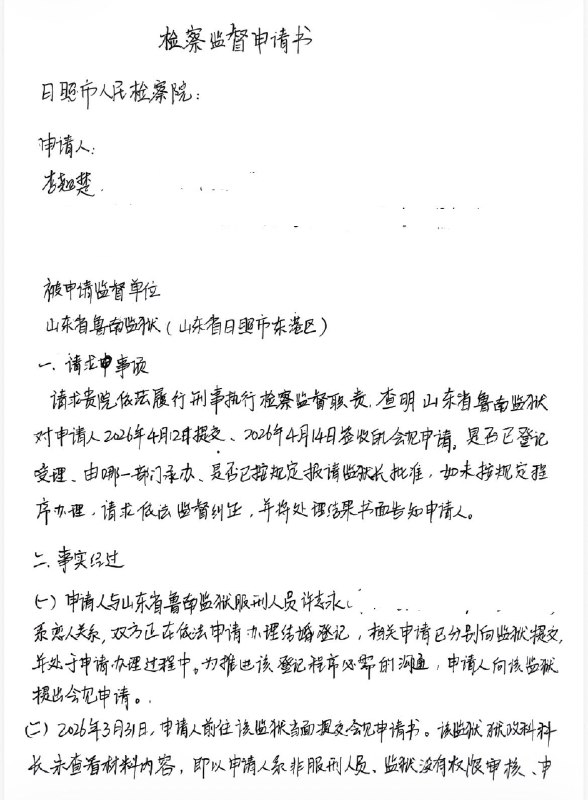 检察监督申请书
日照市人民检察院：
申请人：
李翘楚
被申请监督单位
山东省鲁南监狱（山东省日照市东港区）
一、请求事项
请求贵院依法履行刑事执行检察监督职责，查明山东省鲁南监狱
对申请人2026年4月12日提交、2026年4月14日签收的会见申请，是否已登记
受理、由哪一部门承办、是否已按规定报请监狱长批准，如未按规定程
序办理，请求依法监督纠正，并将处理结果书面告知申请人。
二、事实经过
（一）申请人与山东省鲁南监狱服刑人员许志永（
系恋人关系，双方正在依法申请办理结婚登记，相关申请已分别向监狱提交，
并处于申请办理过程中。为推进该登记程序必需的沟通，申请人向该监狱
提出会见申请。
（二）2026年3月31日，申请人前往该监狱当面提交会见申请书。该监狱狱政科科
长未查看材料内容，即以申请人系非服刑人员、监狱没有权限审核、申